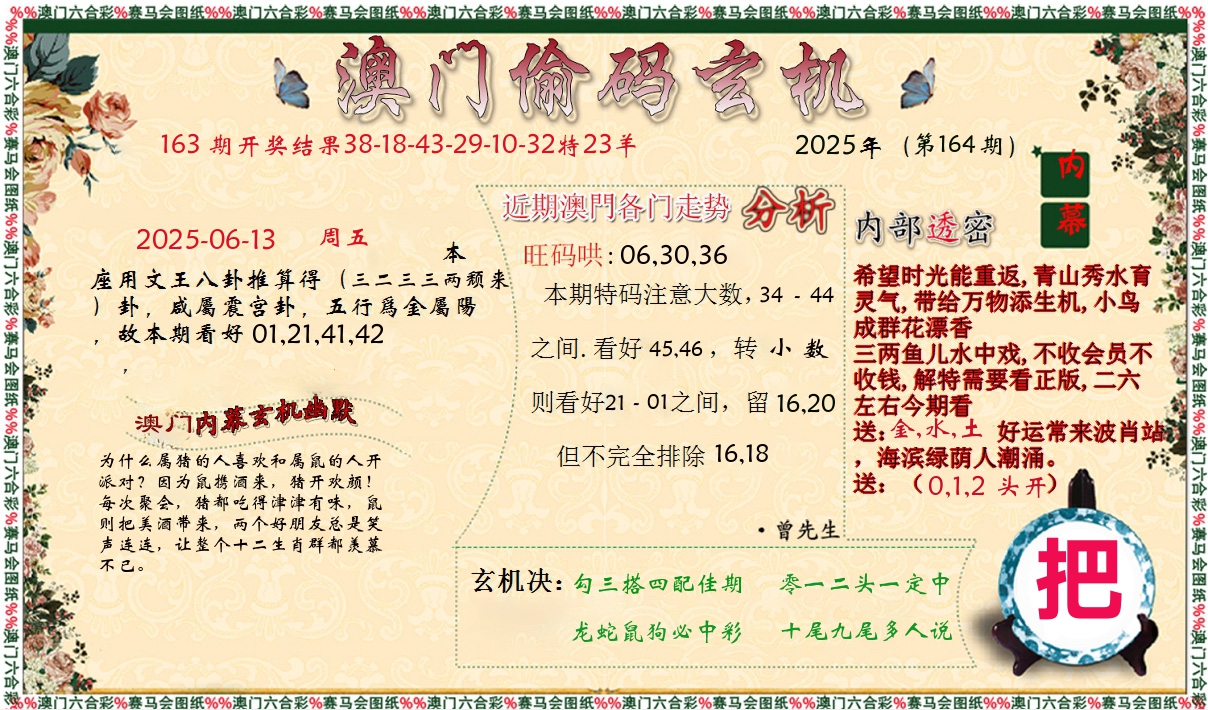 %%澳门六合彩%赛马会图纸%%澳门六合彩%赛马会图纸%%澳门六合彩%赛马会图纸%%澳门六合彩%赛马会图纸%%澳门六合彩%赛马会图纸%%澳门六合彩%赛马会图纸%%
澳门偷码玄机
163 期开奖结果38-18-43-29-10-32特23羊
2025年（第164期）
内幕
2025-06-13 周五
本
座用文王八卦推算得（三二三三两颏来
）卦，咸屬震宫卦，五行爲金屬陽
，故本期看好 01,21,41,42
，
澳门内幕玄机幽默
为什么属猪的人喜欢和属鼠的人开
派对？因为鼠携酒来，猪开欢颜！
每次聚会，猪都吃得津津有味，鼠
则把美酒带来，两个好朋友总是笑
声连连，让整个十二生肖群都羡慕
不已。
近期澳門各门走势 分析
旺码哄: 06,30,36
本期特码注意大数, 34 - 44
之间. 看好 45,46 ，转 小 数
则看好21 - 01之间，留 16,20
但不完全排除 16,18
·曾先生
内部透密
希望时光能重返, 青山秀水育
灵气, 带给万物添生机, 小鸟
成群花漂香
三两鱼儿水中戏, 不收会员不
收钱, 解特需要看正版, 二六
左右今期看
送: 金, 水, 土 好运常来波肖站
，海滨绿荫人潮涌。
送：（0,1,2 头开）
玄机决: 勾三搭四配佳期 零一二头一定中
龙蛇鼠狗必中彩 十尾九尾多人说
把
%%澳门六合彩%赛马会图纸%%澳门六合彩%赛马会图纸%%澳门六合彩%赛马会图纸%%澳门六合彩%赛马会图纸%%澳门六合彩%赛马会图纸%%澳门六合彩%赛马会图纸%%